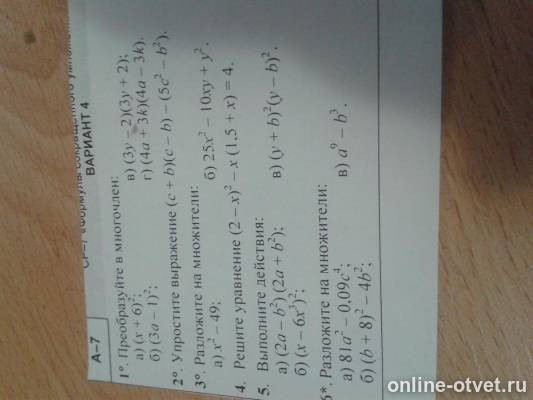 СР-7 «Формулы сокращённого
ВАРИАНТ 4
А–7
1°. Преобразуйте в многочлен:
а) (x + 6)²; в) (3y – 2)(3y + 2);
б) (3a – 1)²; г) (4a + 3k)(4a – 3k).
2°. Упростите выражение (c + b)(c – b) – (5c² – b²).
3°. Разложите на множители:
а) x² – 49; б) 25x² – 10xy + y².
4. Решите уравнение (2 – x)² – x (1,5 + x) = 4.
5. Выполните действия:
а) (2a – b²) (2a + b²); в) (y + b)²(y – b)².
б) (x – 6x³)²;
6*. Разложите на множители:
а) 81a² – 0,09c⁴; в) a⁹ – b³.
б) (b + 8)² – 4b²;
online-otvet.ru